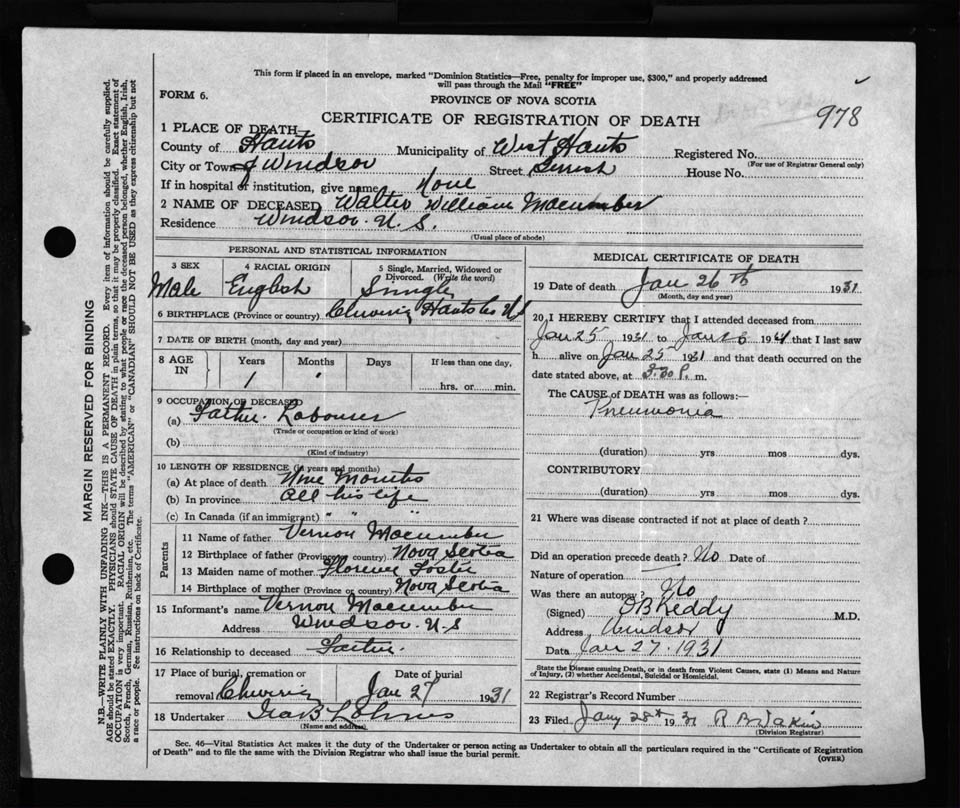 This form if placed in an envelope, marked "Dominion Statistics—Free, penalty for improper use, $300," and properly addressed
will pass through the Mail "FREE"
FORM 6.
PROVINCE OF NOVA SCOTIA
978
CERTIFICATE OF REGISTRATION OF DEATH
1 PLACE OF DEATH
County of Hants Municipality of West Hants Registered No.
(For use of Registrar General only)
City or Town of Windsor Street House No.
If in hospital or institution, give name None
2 NAME OF DECEASED Walter William Macumber
Residence Windsor. N.S.
(Usual place of abode)
PERSONAL AND STATISTICAL INFORMATION
3 SEX 4 RACIAL ORIGIN 5 Single, Married, Widowed or Divorced. (Write the word)
Male English Single
6 BIRTHPLACE (Province or country) Hants Co NS
7 DATE OF BIRTH (month, day and year)
8 AGE IN Years Months Days If less than one day,
1 hrs. or min.
9 OCCUPATION OF DECEASED
(a) Father. Labourer
(Trade or occupation or kind of work)
(b)
(Kind of industry)
10 LENGTH OF RESIDENCE (in years and months)
(a) At place of death Nine Months
(b) In province all his life
(c) In Canada (if an immigrant) " " "
Parents
11 Name of father Vernon Macumber
12 Birthplace of father (Province or country) Nova Scotia
13 Maiden name of mother Florence Foster
14 Birthplace of mother (Province or country) Nova Scotia
15 Informant's name Vernon Macumber
Address Windsor. N.S
16 Relationship to deceased Father.
17 Place of burial, cremation or removal Date of burial
Jan 27 1931
18 Undertaker
(Name and address)
MEDICAL CERTIFICATE OF DEATH
19 Date of death Jan 26th 1931
(Month, day and year)
20 I HEREBY CERTIFY that I attended deceased from
Jan 25 1931 to Jan 26 1931 that I last saw
h alive on Jan 25 1931 and that death occurred on
date stated above, at 3.30 P. m.
The CAUSE of DEATH was as follows:—
Pneumonia
(duration) yrs mos dys.
CONTRIBUTORY
(duration) yrs mos dys.
21 Where was disease contracted if not at place of death?
Did an operation precede death? No Date of
Nature of operation
Was there an autopsy? No
(Signed) M.D.
Address Windsor
Data Jan 27. 1931
State the Disease causing Death, or in death from Violent Causes, state (1) Means and Nature
of Injury, (2) whether Accidental, Suicidal or Homicidal.
22 Registrar's Record Number
23 Filed Jany 28th 1931
(Division Registrar)
Sec. 46—Vital Statistics Act makes it the duty of the Undertaker or person acting as Undertaker to obtain all the particulars required in the "Certificate of Registration
of Death" and to file the same with the Division Registrar who shall issue the burial permit.
(OVER)
MARGIN RESERVED FOR BINDING
N.B.—WRITE PLAINLY WITH UNFADING INK—THIS IS A PERMANENT RECORD. Every item of information should be carefully supplied.
AGE should be stated EXACTLY. PHYSICIANS should STATE CAUSE OF DEATH in plain terms, so that it may be properly classified. Exact statement of
OCCUPATION is very important. RACIAL ORIGIN will be described by stating to what people or race the deceased person belonged, whether English, Irish,
Scotch, French, German, Russian, Ruthenian, etc. The terms "AMERICAN" or "CANADIAN" SHOULD NOT BE USED as they express citizenship but not
a race or people. See instructions on back of Certificate.